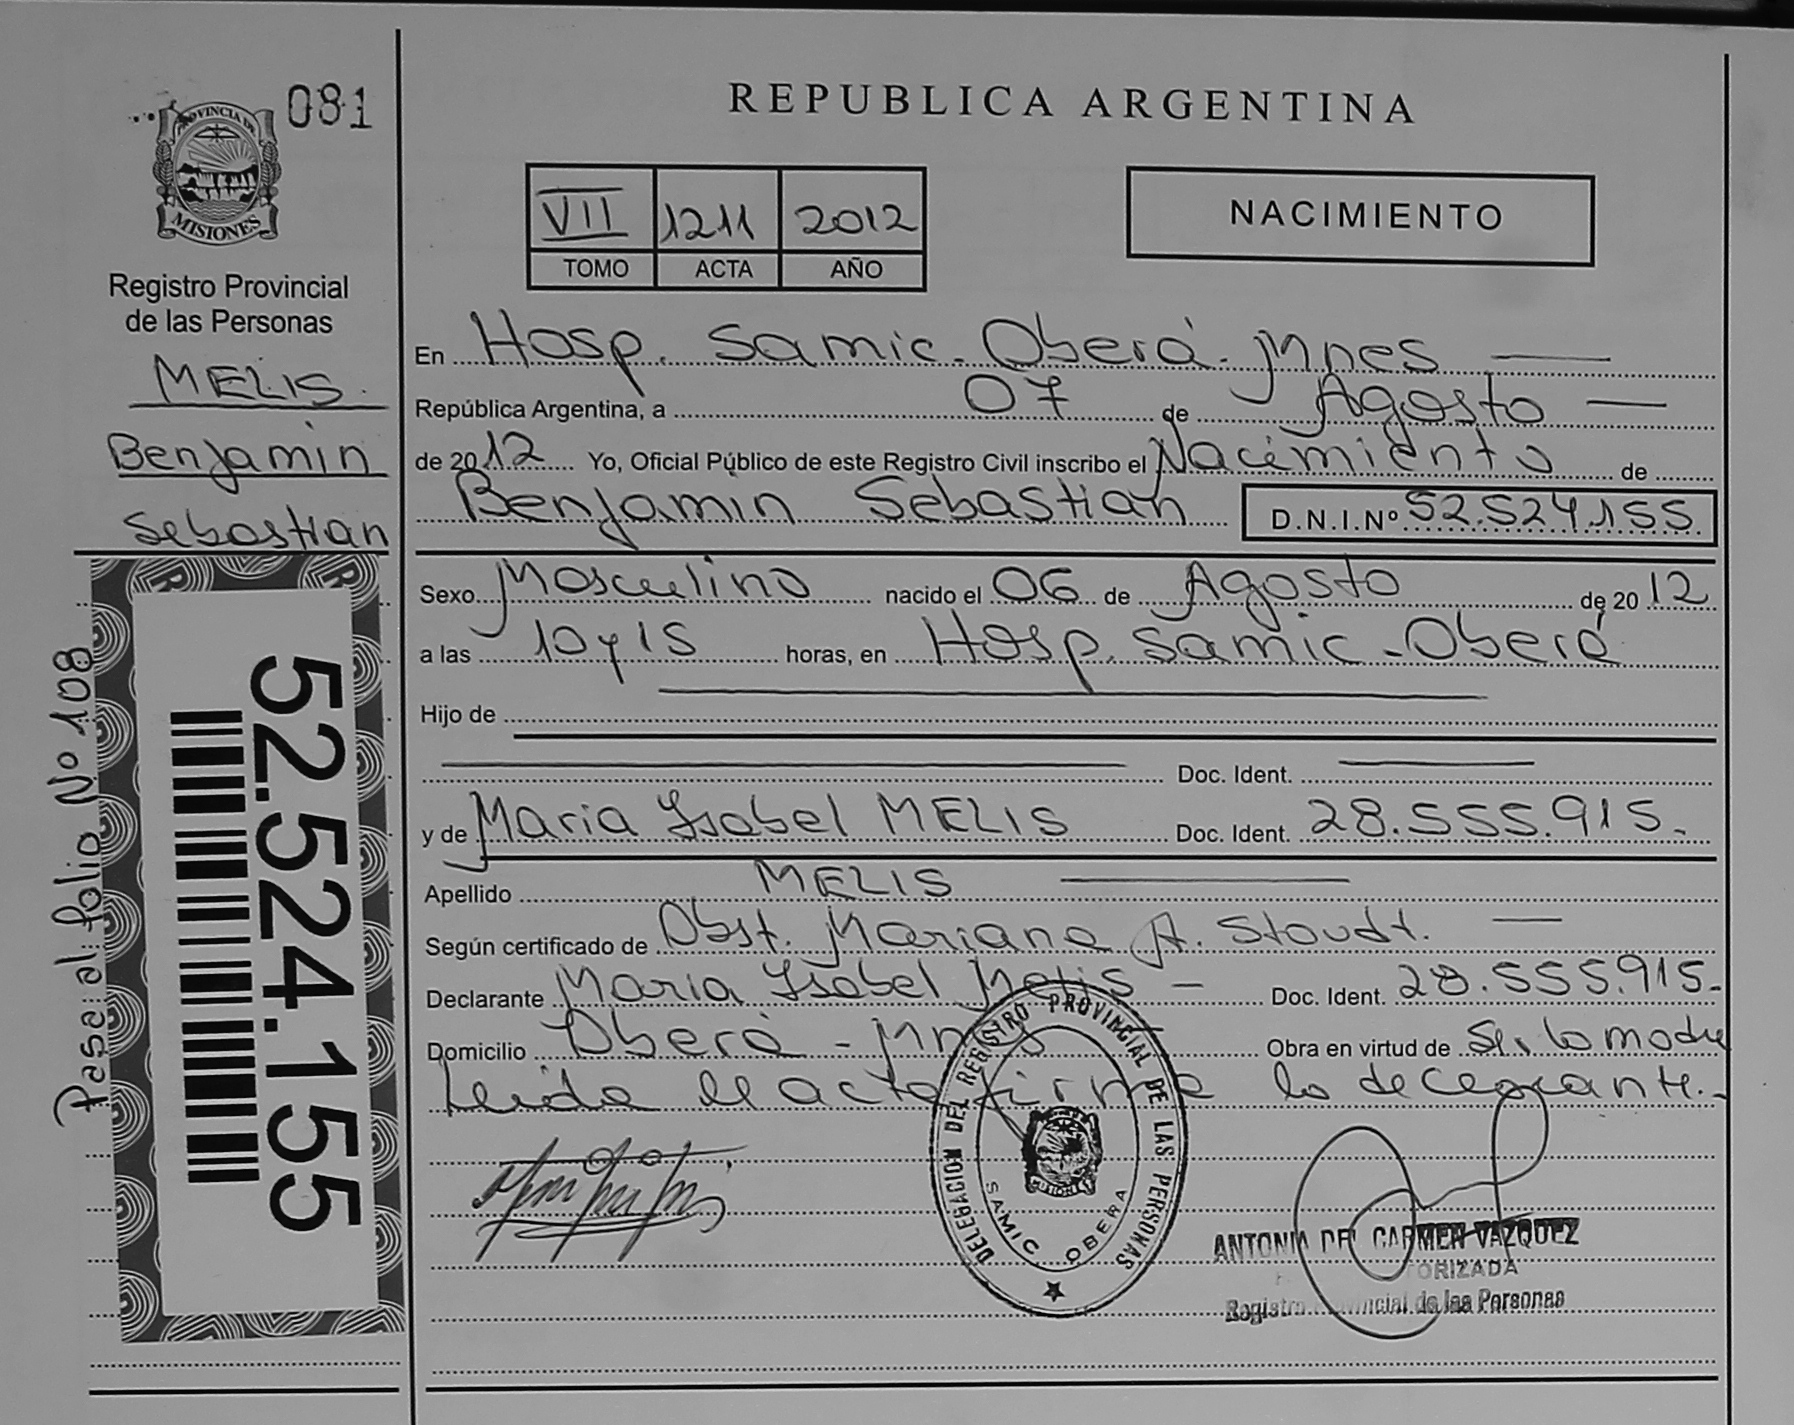 081
PROVINCIA DE
MISIONES
Registro Provincial
de las Personas
MELIS.
Benjamin
Sebastian
52.524.155
Pasa al: folio Nº 108
REPUBLICA ARGENTINA
VII 1211 2012
TOMO ACTA AÑO
NACIMIENTO
En Hosp. Samic - Oberá - Mnes
República Argentina, a 07 de Agosto
de 2012 Yo, Oficial Público de este Registro Civil inscribo el Nacimiento de
Benjamin Sebastian D.N.I.Nº 52.524.155
Sexo Masculino nacido el 06 de Agosto de 2012
a las 10 y 15 horas, en Hosp. Samic - Oberá
Hijo de
Doc. Ident.
y de Maria Ysabel MELIS Doc. Ident. 28.555.915.-
Apellido MELIS
Según certificado de Obst. Mariana A. Stoudt.
Declarante Maria Ysabel Melis - Doc. Ident. 28.555.915.-
Domicilio Oberá - Mnes Obra en virtud de Ser la madre
Leida el acta firma la declarante.-
DELEGACION DEL REGISTRO PROVINCIAL DE LAS PERSONAS
SAMIC OBERA
ANTONIA DEL CARMEN VAZQUEZ
Registro Provincial de las Personas